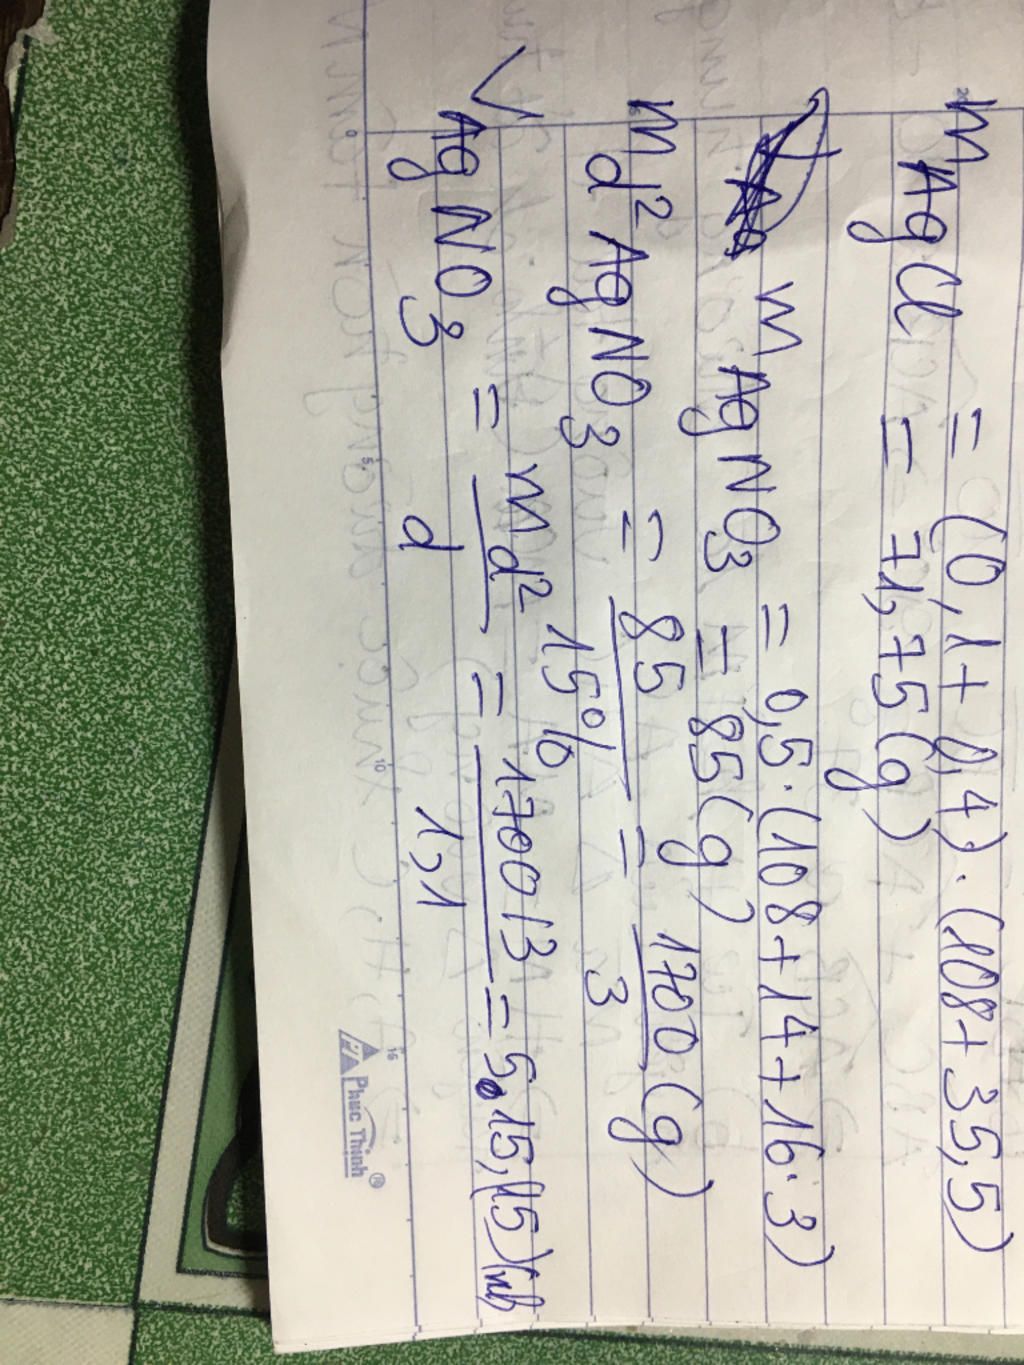 m AgCl = (0,1 + 0,4).(108+35,5)
= 71,75 (g)
m AgNO3 = 0,5.(108+14+16.3)
= 85 (g)
m d² AgNO3 = 85 / 15% = 1700 / 3 (g)
V AgNO3 = m d² / d = 1700 / 3 / 1,1 = 515,(15) (ml)
0 5 10 15
Phuc Thinh ®